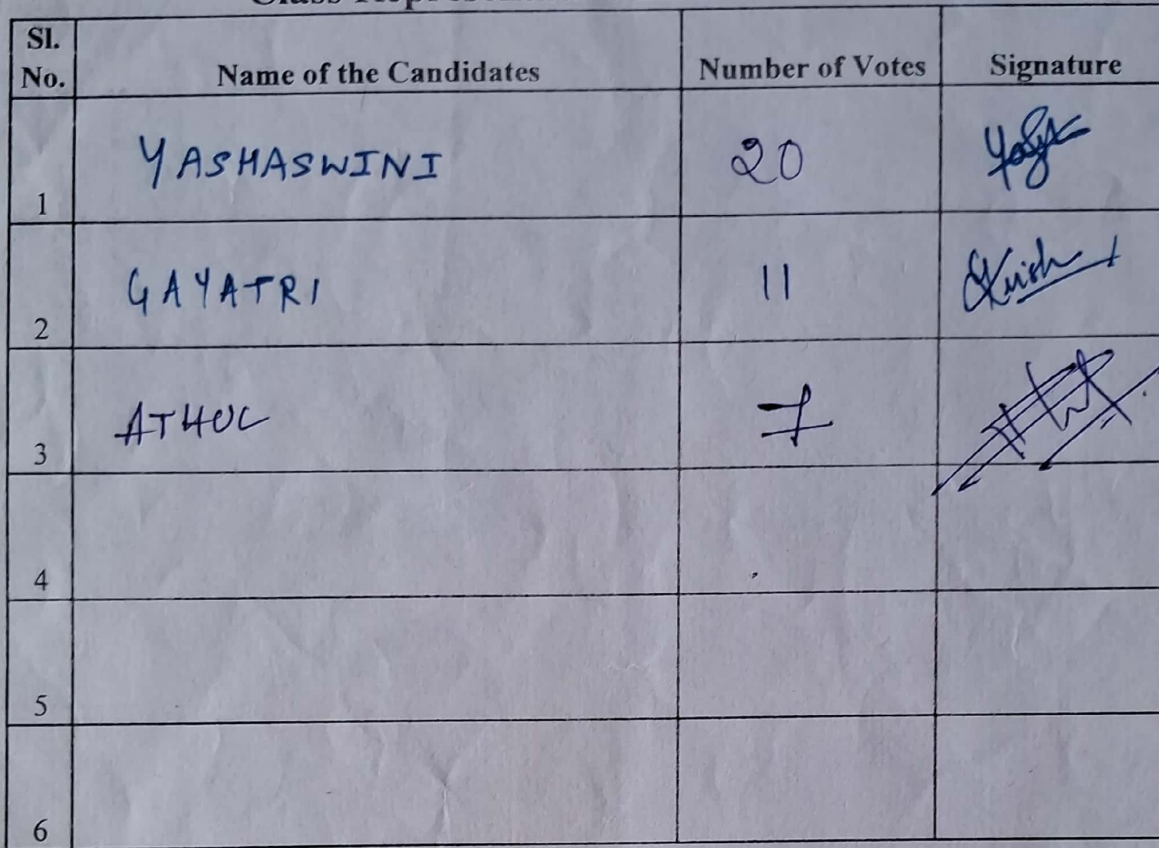 Sl.
No. Name of the Candidates Number of Votes Signature
1 YASHASWINI 20
2 GAYATRI 11
3 ATHUL 7
4
5
6